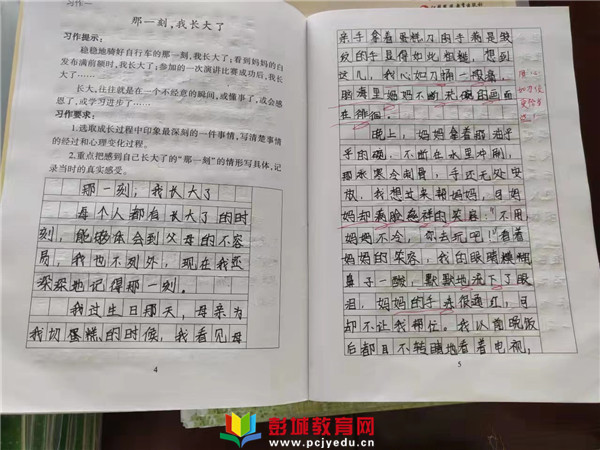 习作一
那一刻，我长大了
习作提示：
稳稳地骑好自行车的那一刻，我长大了；看到妈妈的白
发布满前额时，我长大了；参加的一次演讲比赛成功后，我长
大了……
长大，往往就是在一个不经意的瞬间，或懂事了，或会感
恩了，或学习进步了……
习作要求：
1.选取成长过程中印象最深刻的一件事情，写清楚事情
的经过和心理变化过程。
2.重点把感到自己长大了的“那一刻”的情形写具体，记
录当时的真实感受。
那一刻，我长大了
每个人都有长大了的时
刻，能够体会到父母的不容
易，我也不列外，现在我还
深深地记得那一刻。
我过生日那天，母亲为
我切蛋糕的时候，我看见母
4
亲手拿着蛋糕刀的手满是皱
纹的手是得如此粗糙，想到
这儿，我心如刀
脑海里妈妈不断
的画面
在徘徊。
晚上，妈妈拿着
手的碗，不断在水里冲刷，
水寒冷刺骨，手还无处安
放，我想过来帮妈妈，但妈
妈却满脸慈祥的笑容：“不用
妈妈不冷，你去玩吧！”看着
妈妈的笑容，我的眼睛模糊
鼻子一酸，默默地流下了眼
泪，妈妈的手
很通红，可
却不让我帮忙。我以前吃饭
后都目不转睛地看着电视，
5
彭城教育网
www.pcjyedu.cn